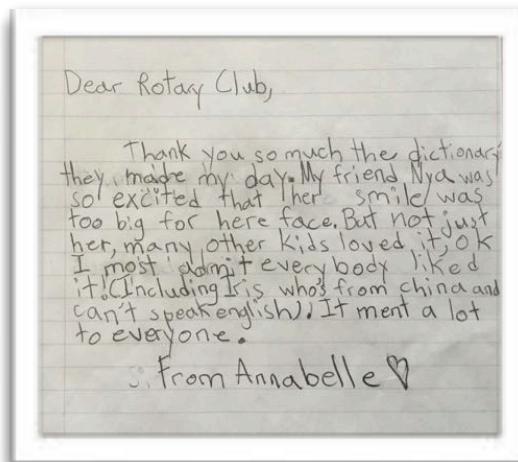 Dear Rotary Club,
Thank you so much the dictionary
they made my day. My friend Nya was
so excited that her smile was
too big for here face. But not just
her, many other kids loved it, ok
I most admit everybody liked
it! (Including Iris who's from china and
can't speak english). It ment a lot
to everyone.
From Annabelle ♡